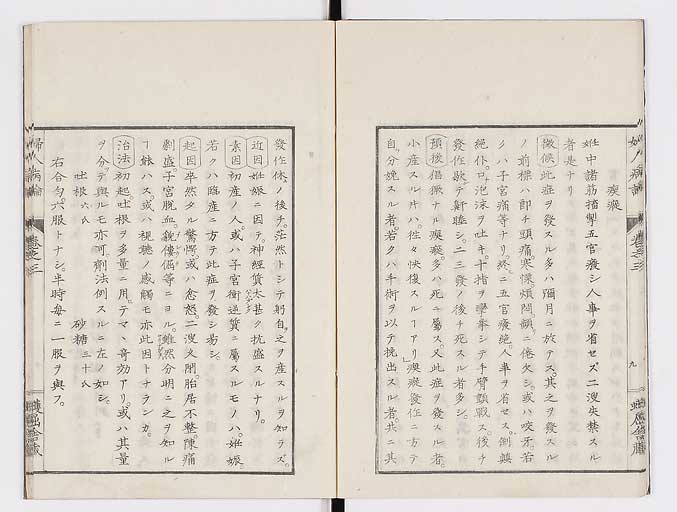 婦人病論
卷之三
九
痙瘲
妊中諸筋搐掣五官癈シ人事ヲ省セズ二溲失禁スル
者是ナリ
徴候此症ヲ發スル多ハ彌月ニ於テス。其之ヲ發スル
ノ前標ハ即チ頭痛。寒慄。煩悶。頻ニ倦欠シ。或ハ咬牙若
クハ子宮痛等ナリ。終ニ五官癈絶。人事ヲ省セス。倒顛
絶仆。口泡沫ヲ吐キ。十指ヲ學拳シテ手臂顫戰ス。後チ
發作歇デ鼾睡シ。二三發ノ後チ死スル者多シ。
預後倡獗ナル瘈瘲多ハ死ニ屬ス。又此症ヲ發スル者。
小産スル片ハ往々快復スルヿアリ」瘈瘲發作ニ方テ
自分娩スル者。若クハ手術ヲ以テ挽出スル者。共ニ其
發作休ノ後チ。茫然トシテ躬自之ヲ産スルヲ知ラズ。
近因妊娠ニ因テ。神經質太甚ク抗盛スルナリ。
素因初産ノ人。或ハ子宮衝逆質ニ屬スルモノハ。妊娠
若クハ臨産ニ方テ此症ヲ發シ易シ。
起因卒然タル驚愕。或ハ忿怒二溲久閉。胎居不整。陳痛
劇盛。子宮脱血。貌傴等ニヨル。雖然分明ニ之ヲ知ル
ヿ能ハス。或ハ視聽ノ感觸モ亦此因トナランカ。
治法初起。吐根ヲ多量ニ用。テマヽ奇効アリ。或ハ其量
ヲ分テ與ルモ亦可。劑法例スルニ左ノ如シ。
吐根六八
砂糖三十八
右合勻。六服トナシ。半時毎ニ一服ヲ與フ。
婦人病論
卷之三